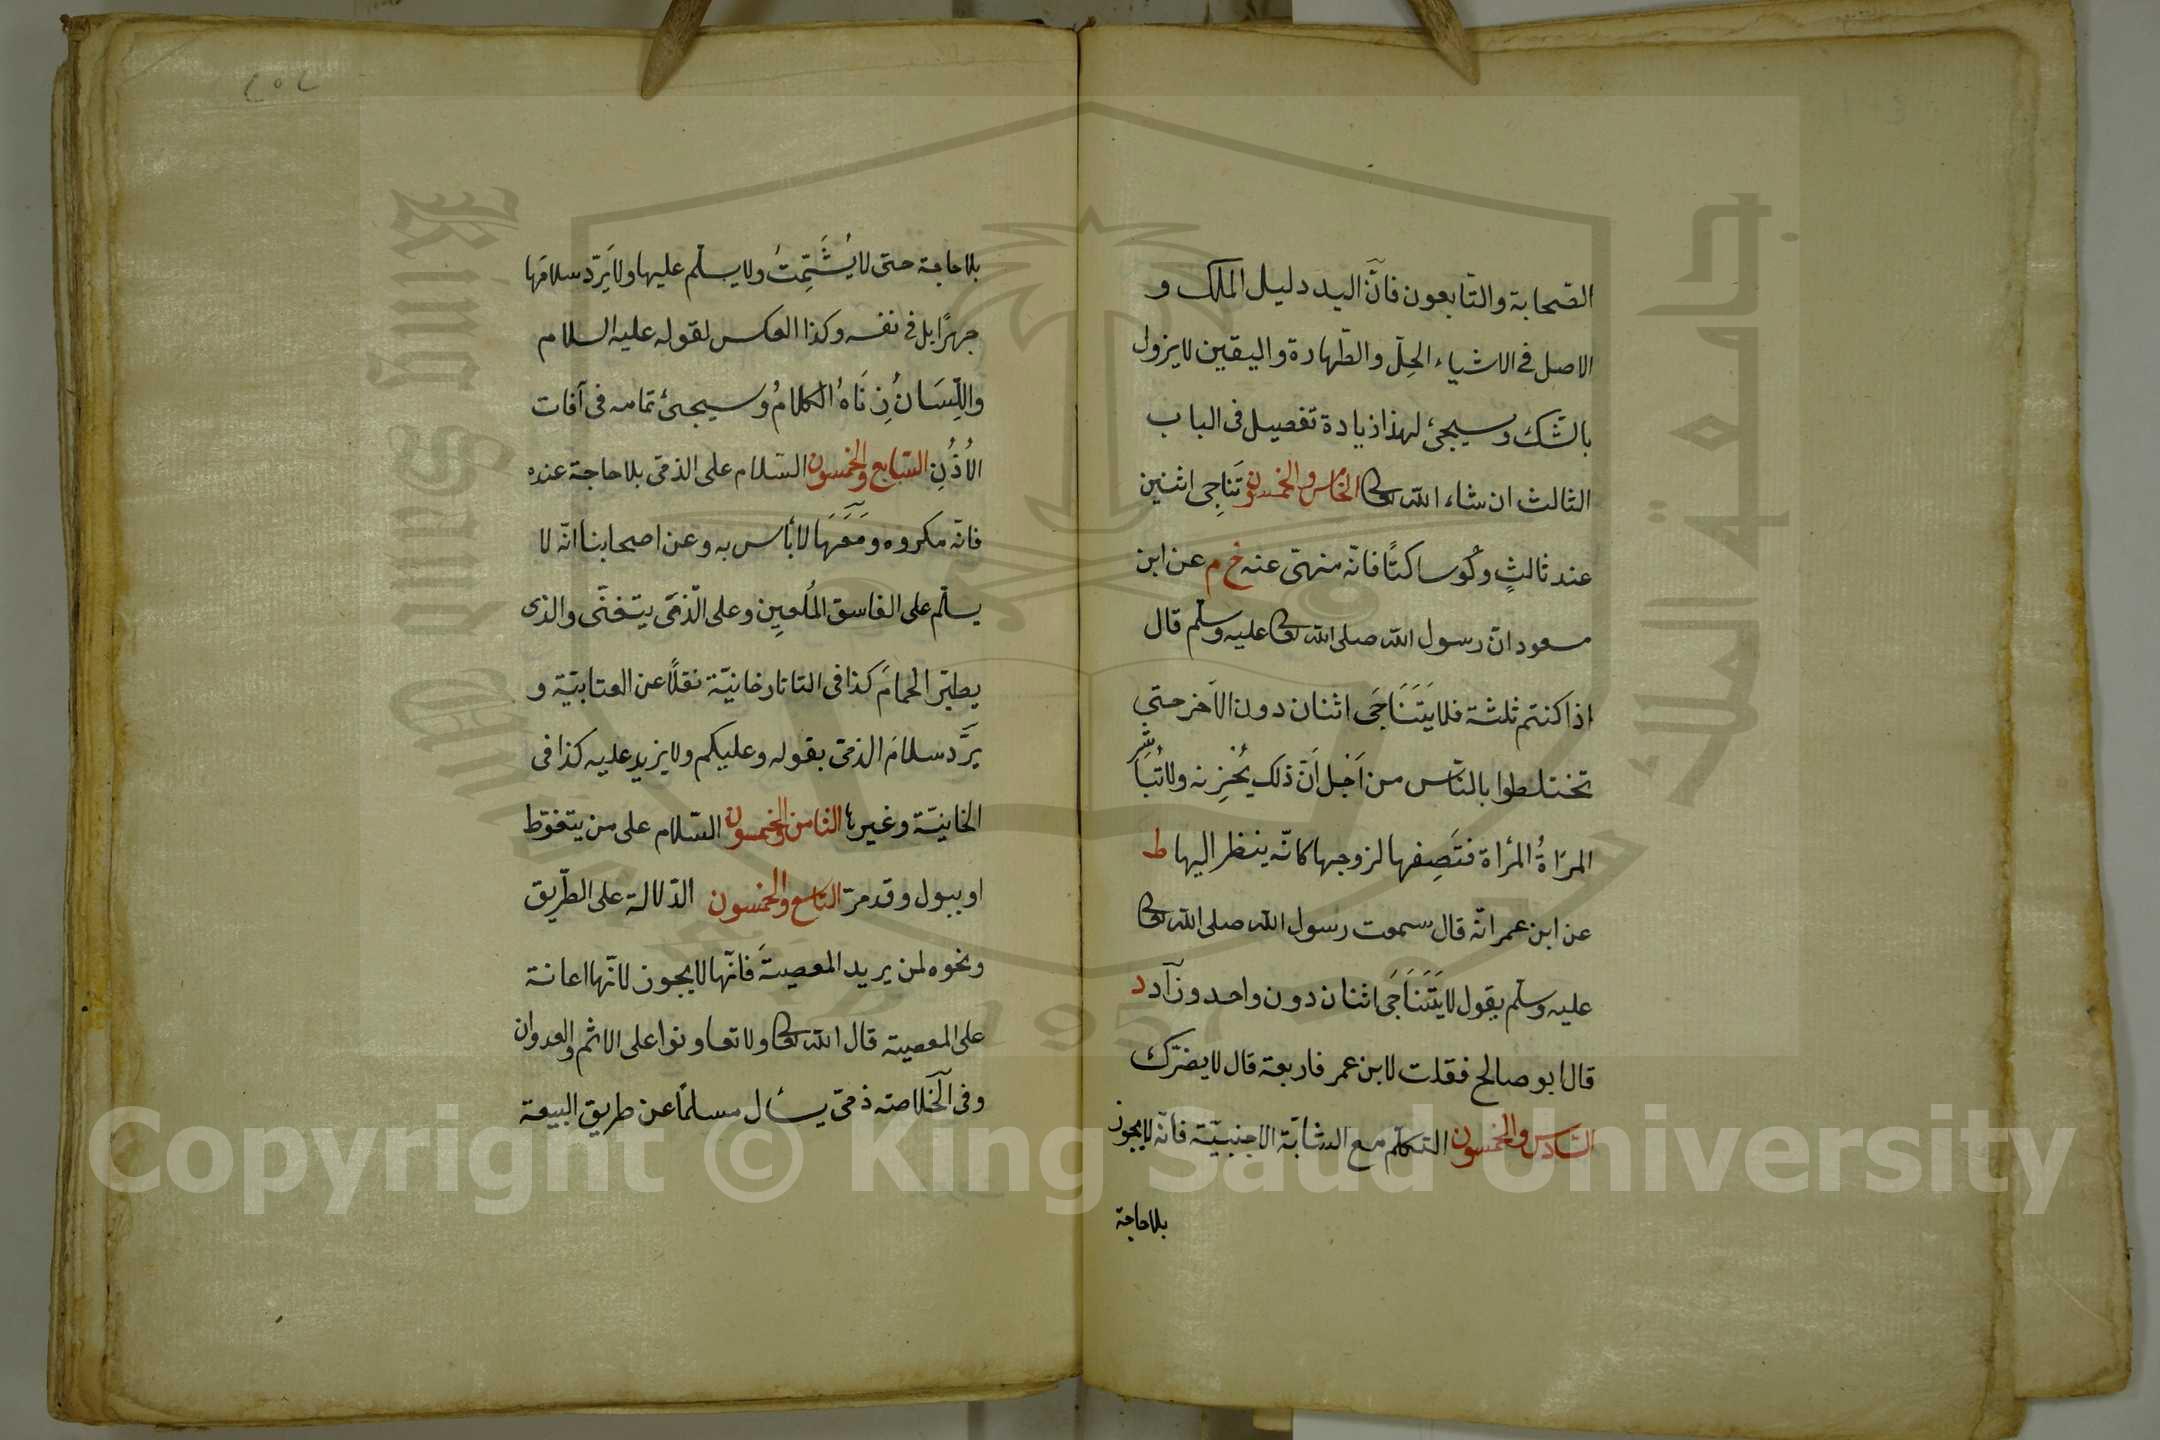 الصّحابة والتّابعون فانّ اليد دليل الملك و
الاصل فى الاشياء الحِلّ والطّهارة واليقين لا يزول
بالشّك وسيجئ لهذا زيادة تفصيل فى الباب
الثالث ان شاء الله تعالى الخامس والخمسون تَناجِى اثنين
عند ثالثٍ ساكتًا فانّه منهىّ عنه خ م عن ابن
مسعود انّ رسول الله صلى الله تعالى عليه وسلّم قال
اذا كنتم ثلثة فلا يَتَنَاجَى اثنان دون الآخر حتى
تختلطوا بالنّاس من اَجْل اَنّ ذلك يُحْزِنه ولا تُبَاشِر
المرَاةُ المرأة فتَصِفها لزوجها كانّه ينظر اليها ط
عن ابن عمر انّه قال سمعت رسول الله صلى الله تعالى
عليه وسلّم يقول لا يَتَنَاجَى اثنان دون واحد وزاد د
قال ابو صالح فقلت لابن عمر فاربعة قال لا يضرّك
السّادس والخمسون التكلّم مع الشابّة الاجنبيّة فانّه لا يجوز
بلا حاجة
٢٥٢
بلا حاجة حتى لا يُشَمِّتُ ولا يسلّم عليها ولا يَردّ سلامَها
جهرًا بل فى نفسه وكذا العكس لقوله عليه السلام
واللِّسَانُ زِنَاهُ الكلامُ وسيجئ تمامه فى آفات
الاُذُنِ السّابع والخمسون السّلام على الذمّى بلا حاجة عنده
فانّه مكروه ومَعَهَا لا بأس به وعن اصحابنا انّه لا
يسلّم على الفاسق المُعلِن وعلى الّذى يتغنّى والذى
يطيّر الحمامَ كذا فى التاتارخانيّة نقلًا عن العتابيّة و
يَردّ سلامَ الذمّى بقوله وعليكم ولا يزيد عليه كذا فى
الخانيّة وغيرها الثامن والخمسون السّلام على من يتغوّط
او يبول وقد مرّ التاسع والخمسون الدّلالة على الطّريق
ونحوه لمن يريد المعصيةَ فانّها لا يجوز لانّها اعانة
على المعصية قال الله تعالى ولا تعاونوا على الاثم والعدوان
وفى الخلاصة ذمّى يسأل مسلمًا عن طريق البيعة
جامعة الملك سعود
King Saud University
1957
Copyright © King Saud University